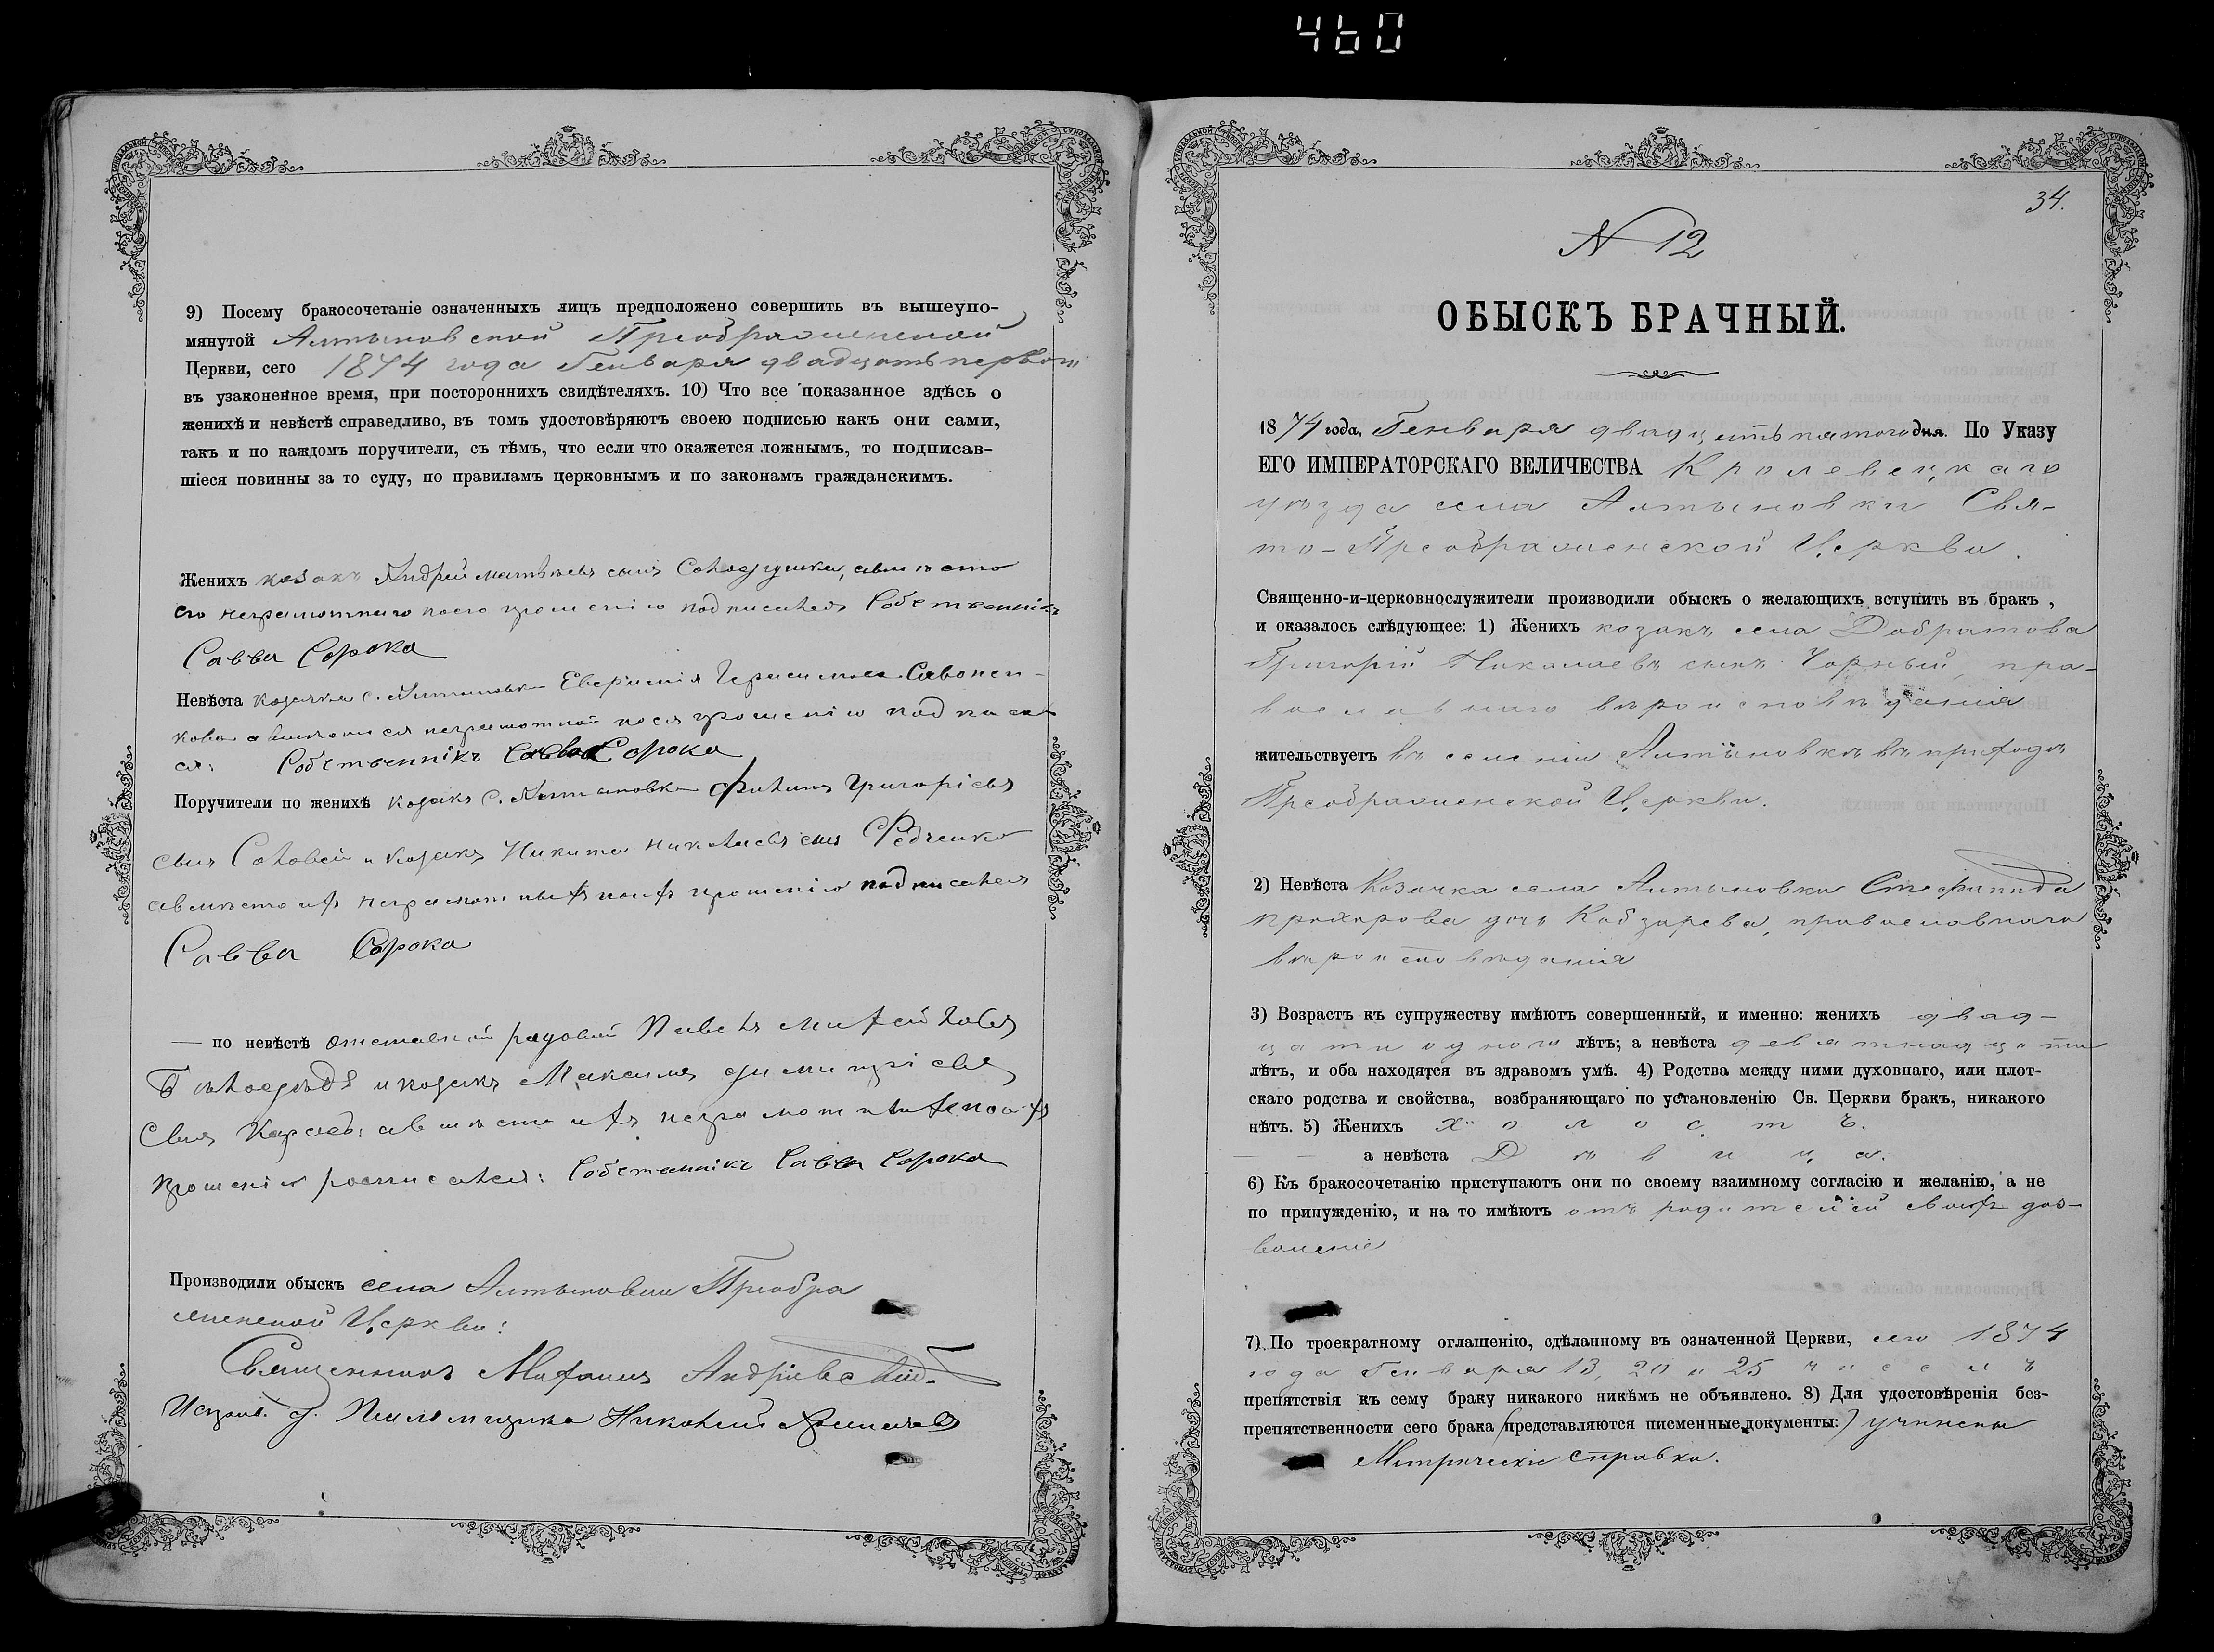 460
9) Посему бракосочетаніе означенныхъ лицъ предположено совершить въ вышеупо-
мянутой Алтыновской Преображенской
Церкви, сего 1874 года Генваря двадцать первого
въ узаконенное время, при постороннихъ свидѣтеляхъ. 10) Что все показанное здѣсь о
женихѣ и невѣстѣ справедливо, въ томъ удостовѣряютъ своею подписью какъ они сами,
такъ и по каждомъ поручители, съ тѣмъ, что если что окажется ложнымъ, то подписав-
шіеся повинны за то суду, по правиламъ церковнымъ и по законамъ гражданскимъ.
Женихъ козакъ Андрей Матвѣевъ сынъ а вмѣсто
его неграмотнаго по его прошенію подписался Собственникъ
Савва Сорока
Невѣста козачка с. Алтыновки Герасимова Савонен-
кова а вмѣсто ея неграмотной по ея прошенію подписал-
ся: Собственникъ Савва Сорока
Поручители по женихѣ козакъ с. Алтыновки Филипъ Григоріевъ
сынъ Соловей и козакъ Никита Николаевъ сынъ Федченко
а вмѣсто ихъ неграмотныхъ по ихъ прошенію подписался
Савва Сорока
— по невѣстѣ отставной рядовой Павелъ Михайловъ
и козакъ Максимъ Димитріевъ
сынъ а вмѣсто ихъ неграмотныхъ по ихъ
прошенію росписался: Собственникъ Савва Сорока
Производили обыскъ села Алтыновки Преобра
женской Церкви:
Священникъ Андріевскій
Исправ. д. Псаломщика Николай
34.
N 12
ОБЫСКЪ БРАЧНЫЙ.
1874 года, Генваря двадцать пятого дня. По Указу
ЕГО ИМПЕРАТОРСКАГО ВЕЛИЧЕСТВА Кролевецкаго
уѣзда села Алтыновки Свя-
то-Преображенской Церкви.
Священно-и-церковнослужители производили обыскъ о желающихъ вступить въ бракъ ,
и оказалось слѣдующее: 1) Женихъ козакъ села Добротова
Григорій Николаевъ сынъ Чорный, пра-
вославнаго вѣроисповѣданія
жительствуетъ въ селеніи Алтыновкѣ въ приходѣ
Преображенской Церкви.
2) Невѣста Козачка села Алтыновки Стефанида
Прохорова дочь Кобзарева, православнаго
вѣроисповѣданія
3) Возрастъ къ супружеству имѣютъ совершенный, и именно: женихъ двад-
цати одного лѣтъ; а невѣста девятнадцати
лѣтъ, и оба находятся въ здравомъ умѣ. 4) Родства между ними духовнаго, или плот-
скаго родства и свойства, возбраняющаго по установленію Св. Церкви бракъ, никакого
нѣтъ. 5) Женихъ холостъ.
а невѣста Дѣвица.
6) Къ бракосочетанію приступаютъ они по своему взаимному согласію и желанію, а не
по принужденію, и на то имѣютъ отъ родителей своихъ доз-
воленіе
7) По троекратному оглашенію, сдѣланному въ означенной Церкви, сего 1874
года Генваря 13, 20 и 25 чиселъ
препятствія къ сему браку никакого никѣмъ не объявлено. 8) Для удостовѣренія без-
препятственности сего брака (представляются писменные документы:) учинены
Метрическіе справки.